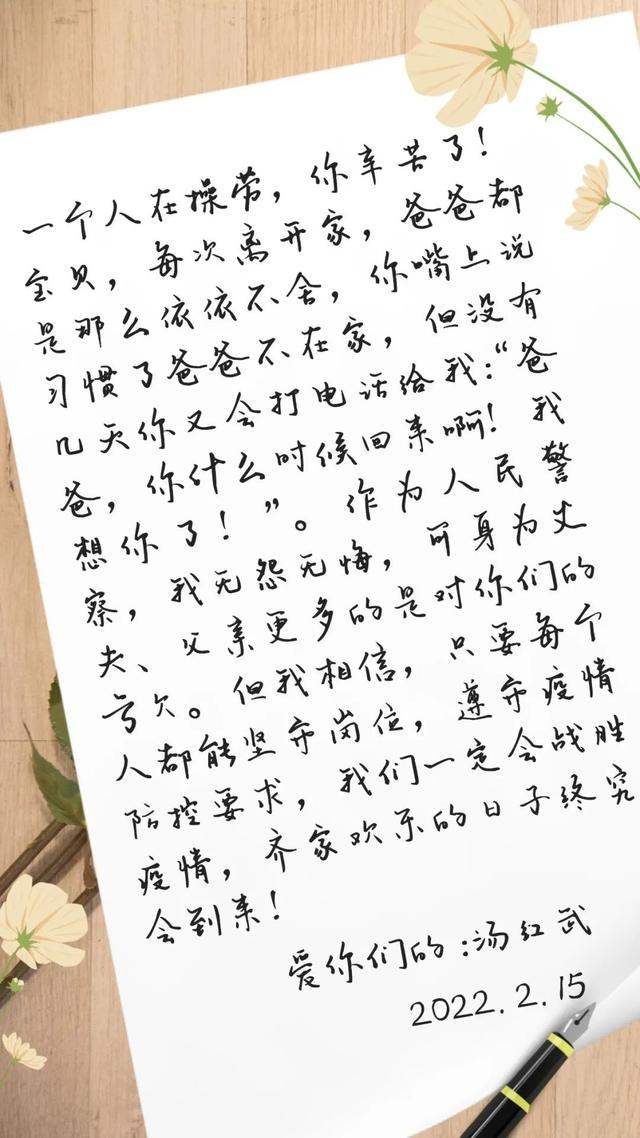 一个人在操劳，你辛苦了！
宝贝，每次离开家，爸爸都
是那么依依不舍，你嘴上说
习惯了爸爸不在家，但没有
几天你又会打电话给我：“爸
爸，你什么时候回来啊！我
想你了！”。作为人民警
察，我无怨无悔，可身为丈
夫、父亲更多的是对你们的
亏欠。但我相信，只要每个
人都能坚守岗位，遵守疫情
防控要求，我们一定会战胜
疫情，齐家欢乐的日子终究
会到来！
爱你们的：汤红武
2022.2.15